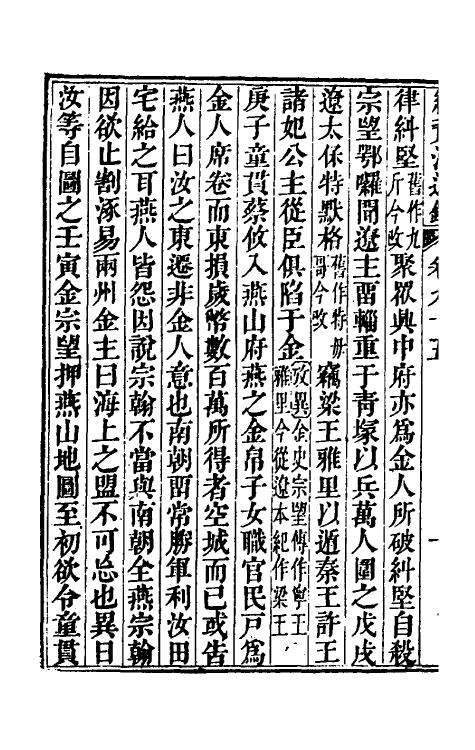 續資治通鑑 卷九十五
律糾堅舊作九斤今改聚眾興中府亦爲金人所破糾堅自殺
宗望鄂囉聞遼主畱輜重于青塚以兵萬人圍之戊戌
遼太保特默格舊作特毋哥今改竊梁王雅里以遁秦王許王
諸妃公主從臣俱陷于金攷異金史宗望傳作寧王雅里今從遼本紀作梁王
庚子童貫蔡攸入燕山府燕之金帛子女職官民戸爲
金人席卷而東損歲幣數百萬所得者空城而已或告
燕人曰汝之東遷非金人意也南朝畱常勝軍利汝田
宅給之耳燕人皆怨因說宗翰不當與南朝全燕宗翰
因欲止割涿易兩州金主曰海上之盟不可忘也異日
汝等自圖之壬寅金宗望押燕山地圖至初欲令童貫